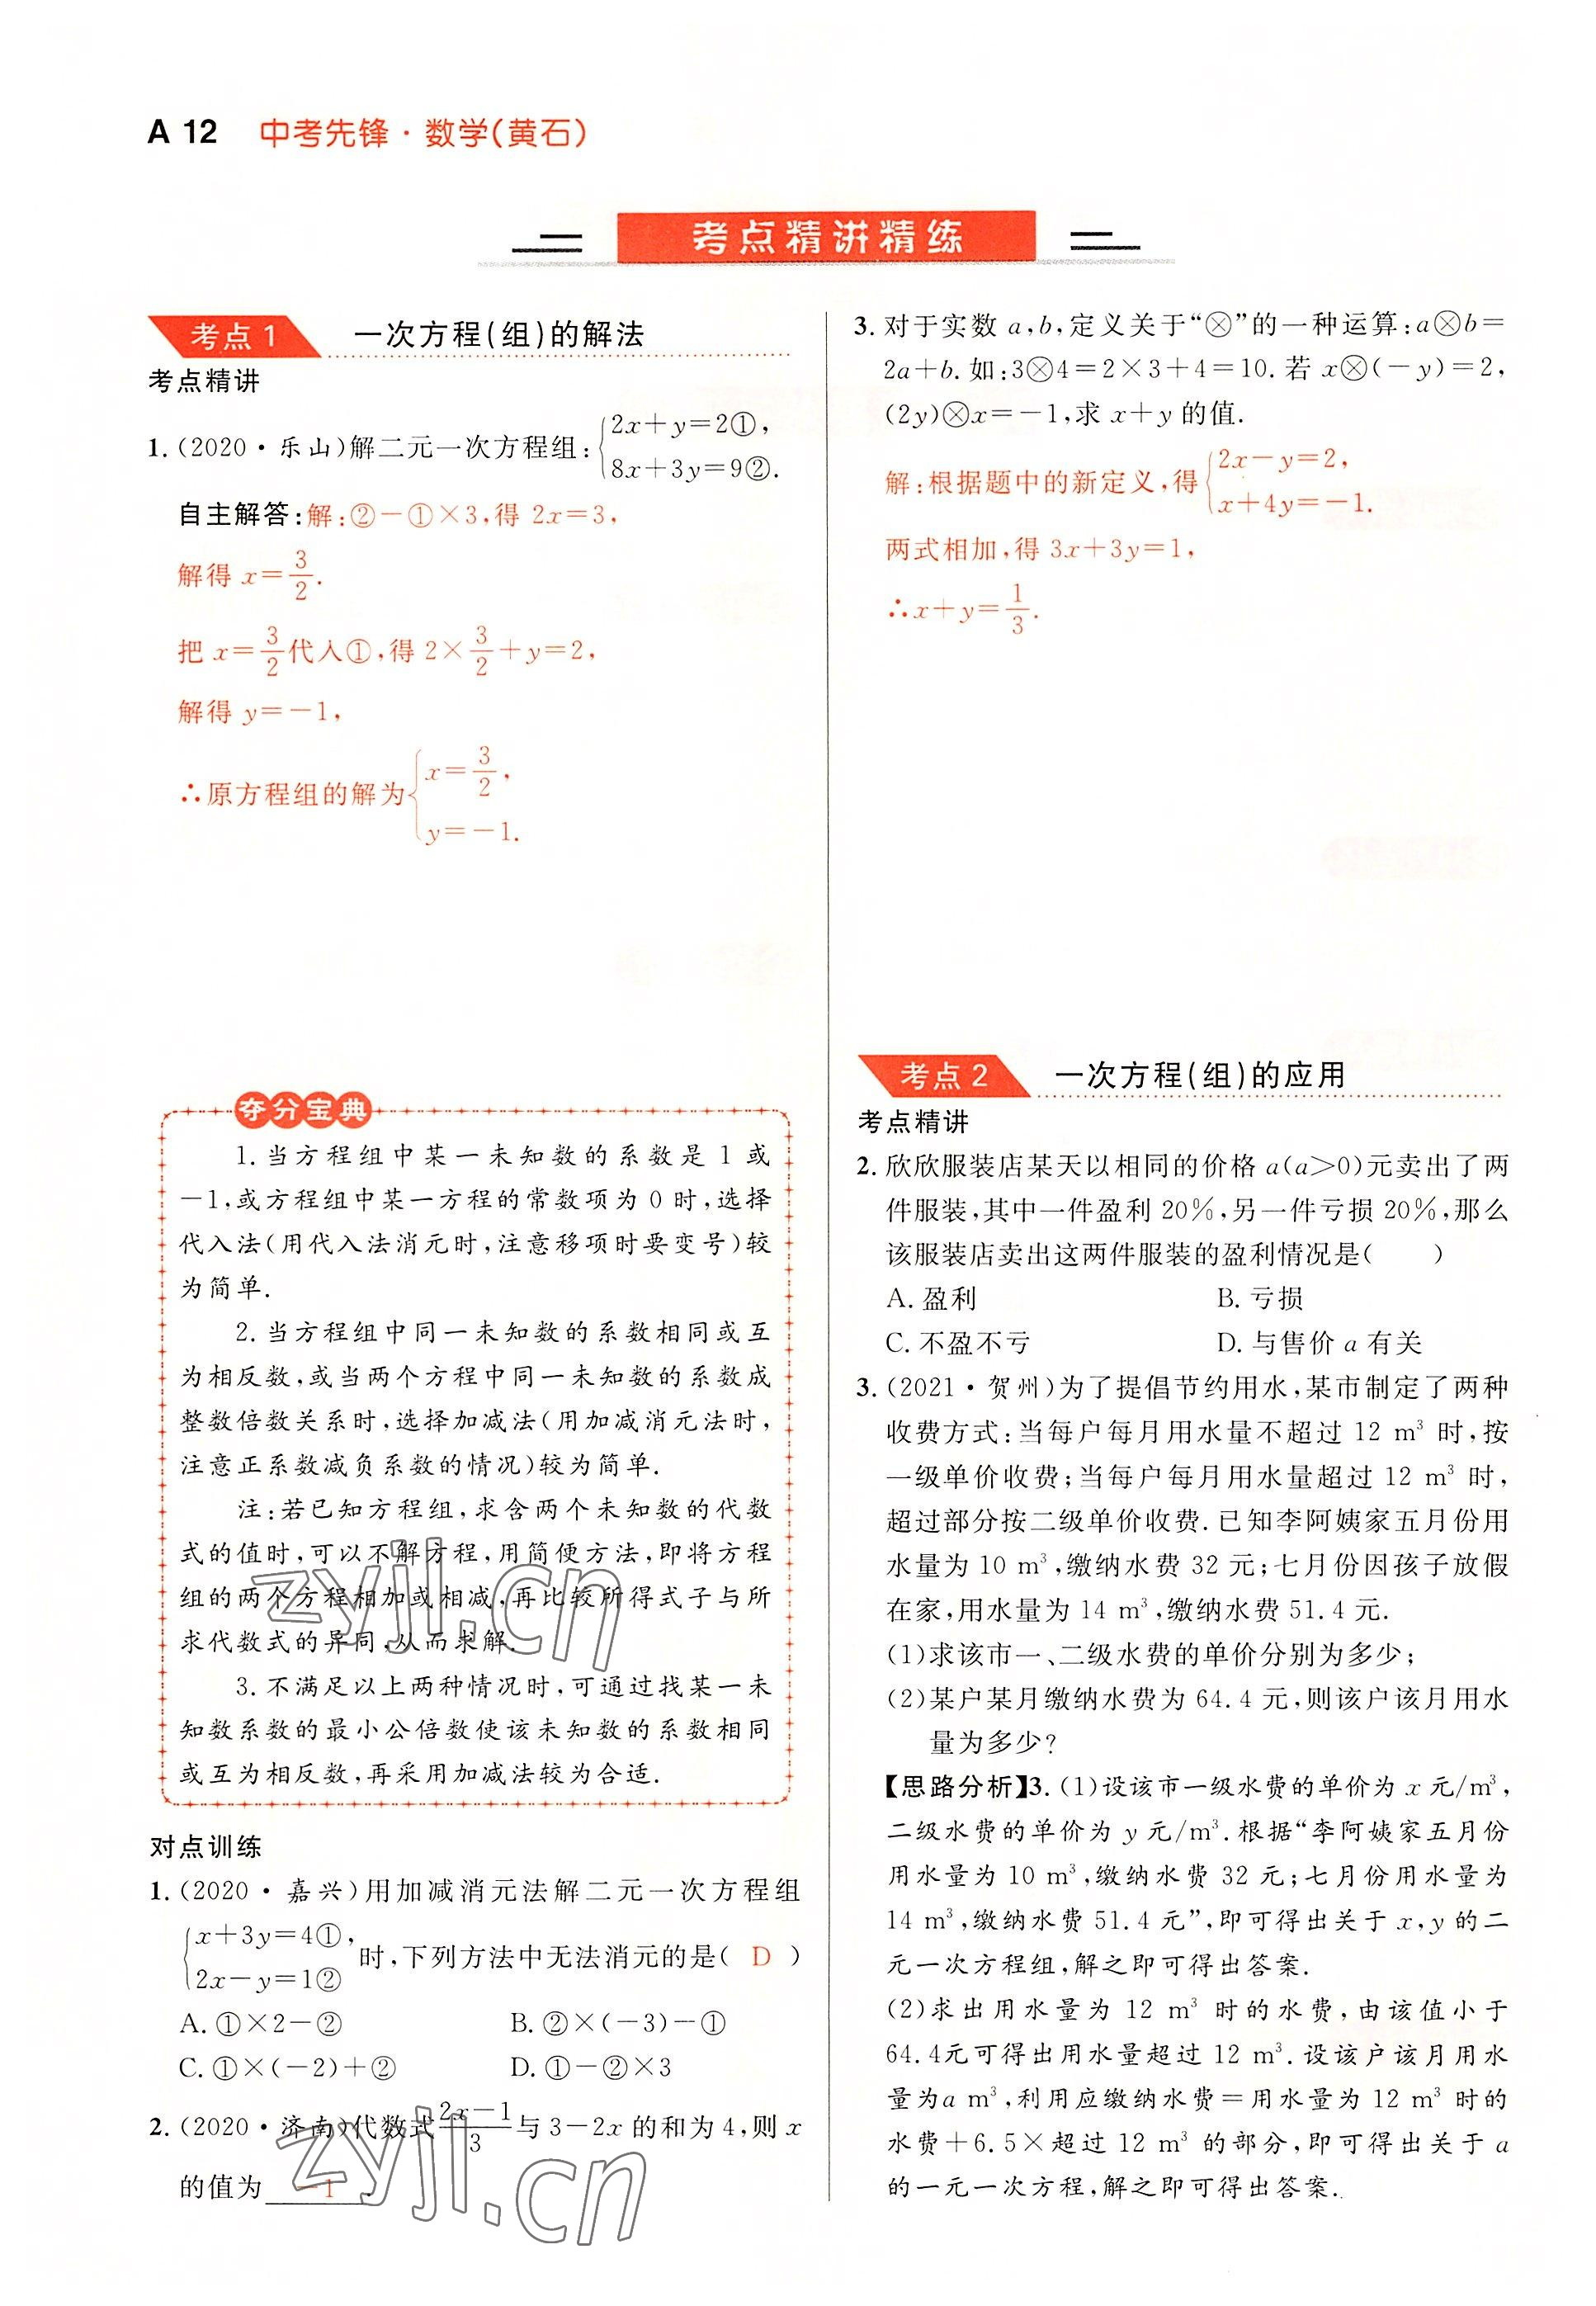 A 12 中考先锋·数学(黄石)
考点精讲精练
考点 1 一次方程(组)的解法
考点精讲
1. (2020·乐山)解二元一次方程组: {2x+y=2①, 8x+3y=9②.
自主解答:解:②-①×3,得 2x=3,
解得 x=3/2.
把 x=3/2代入①,得 2×3/2+y=2,
解得 y=-1,
∴原方程组的解为{x=3/2, y=-1.
夺分宝典
1. 当方程组中某一未知数的系数是 1 或
-1,或方程组中某一方程的常数项为 0 时,选择
代入法(用代入法消元时,注意移项时要变号)较
为简单.
2. 当方程组中同一未知数的系数相同或互
为相反数,或当两个方程中同一未知数的系数成
整数倍数关系时,选择加减法(用加减消元法时,
注意正系数减负系数的情况)较为简单.
注:若已知方程组,求含两个未知数的代数
式的值时,可以不解方程,用简便方法,即将方程
组的两个方程相加或相减,再比较所得式子与所
求代数式的异同,从而求解.
3. 不满足以上两种情况时,可通过找某一未
知数系数的最小公倍数使该未知数的系数相同
或互为相反数,再采用加减法较为合适.
对点训练
1. (2020·嘉兴)用加减消元法解二元一次方程组
{x+3y=4①, 2x-y=1② 时,下列方法中无法消元的是( D )
A. ①×2-② B. ②×(-3)-①
C. ①×(-2)+② D. ①-②×3
2. (2020·济南)代数式(2x-1)/3与 3-2x 的和为 4,则 x
的值为 -1 .
3. 对于实数 a,b,定义关于“⊗”的一种运算:a⊗b=
2a+b. 如:3⊗4=2×3+4=10. 若 x⊗(-y)=2,
(2y)⊗x=-1,求 x+y 的值.
解:根据题中的新定义,得{2x-y=2, x+4y=-1.
两式相加,得 3x+3y=1,
∴x+y=1/3.
考点 2 一次方程(组)的应用
考点精讲
2. 欣欣服装店某天以相同的价格 a(a>0)元卖出了两
件服装,其中一件盈利 20%,另一件亏损 20%,那么
该服装店卖出这两件服装的盈利情况是( )
A. 盈利 B. 亏损
C. 不盈不亏 D. 与售价 a 有关
3. (2021·贺州)为了提倡节约用水,某市制定了两种
收费方式:当每户每月用水量不超过 12 m³ 时,按
一级单价收费;当每户每月用水量超过 12 m³ 时,
超过部分按二级单价收费. 已知李阿姨家五月份用
水量为 10 m³,缴纳水费 32 元;七月份因孩子放假
在家,用水量为 14 m³,缴纳水费 51.4 元.
(1)求该市一、二级水费的单价分别为多少;
(2)某户某月缴纳水费为 64.4 元,则该户该月用水
量为多少?
【思路分析】3. (1)设该市一级水费的单价为 x 元/m³,
二级水费的单价为 y 元/m³. 根据“李阿姨家五月份
用水量为 10 m³,缴纳水费 32 元;七月份用水量为
14 m³,缴纳水费 51.4 元”,即可得出关于 x,y 的二
元一次方程组,解之即可得出答案.
(2)求出用水量为 12 m³ 时的水费,由该值小于
64.4元可得出用水量超过 12 m³. 设该户该月用水
量为a m³,利用应缴纳水费=用水量为 12 m³ 时的
水费+6.5×超过 12 m³ 的部分,即可得出关于 a
的一元一次方程,解之即可得出答案.
zyjl.cn
zyjl.cn